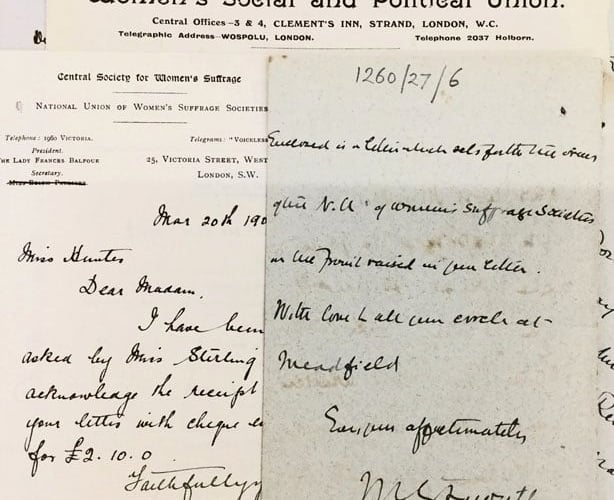 Women's Social and Political Union.
Central Offices–3 & 4, CLEMENT'S INN, STRAND, LONDON, W.C.
Telegraphic Address–WOSPOLU, LONDON. Telephone 2037 Holborn.
Central Society for Women's Suffrage
NATIONAL UNION OF WOMEN'S SUFFRAGE SOCIETIES
Telephone: 1960 VICTORIA. Telegrams: "VOICELESS
President.
THE LADY FRANCES BALFOUR
Secretary.
25, VICTORIA STREET, WEST
LONDON, S.W.
Mar 20th 190
Miss Hunter
Dear Madam,
I have been
asked by Miss Sterling
acknowledge the receipt
your letter with cheque
for £2.10.0
Faithfully
1260/27/6
Enclosed is a letter which sets forth the views
of the N.U. of Women's Suffrage Societies
on the point raised in your letter.
With love to all your circle at
Meadfield
Ever your affectionately